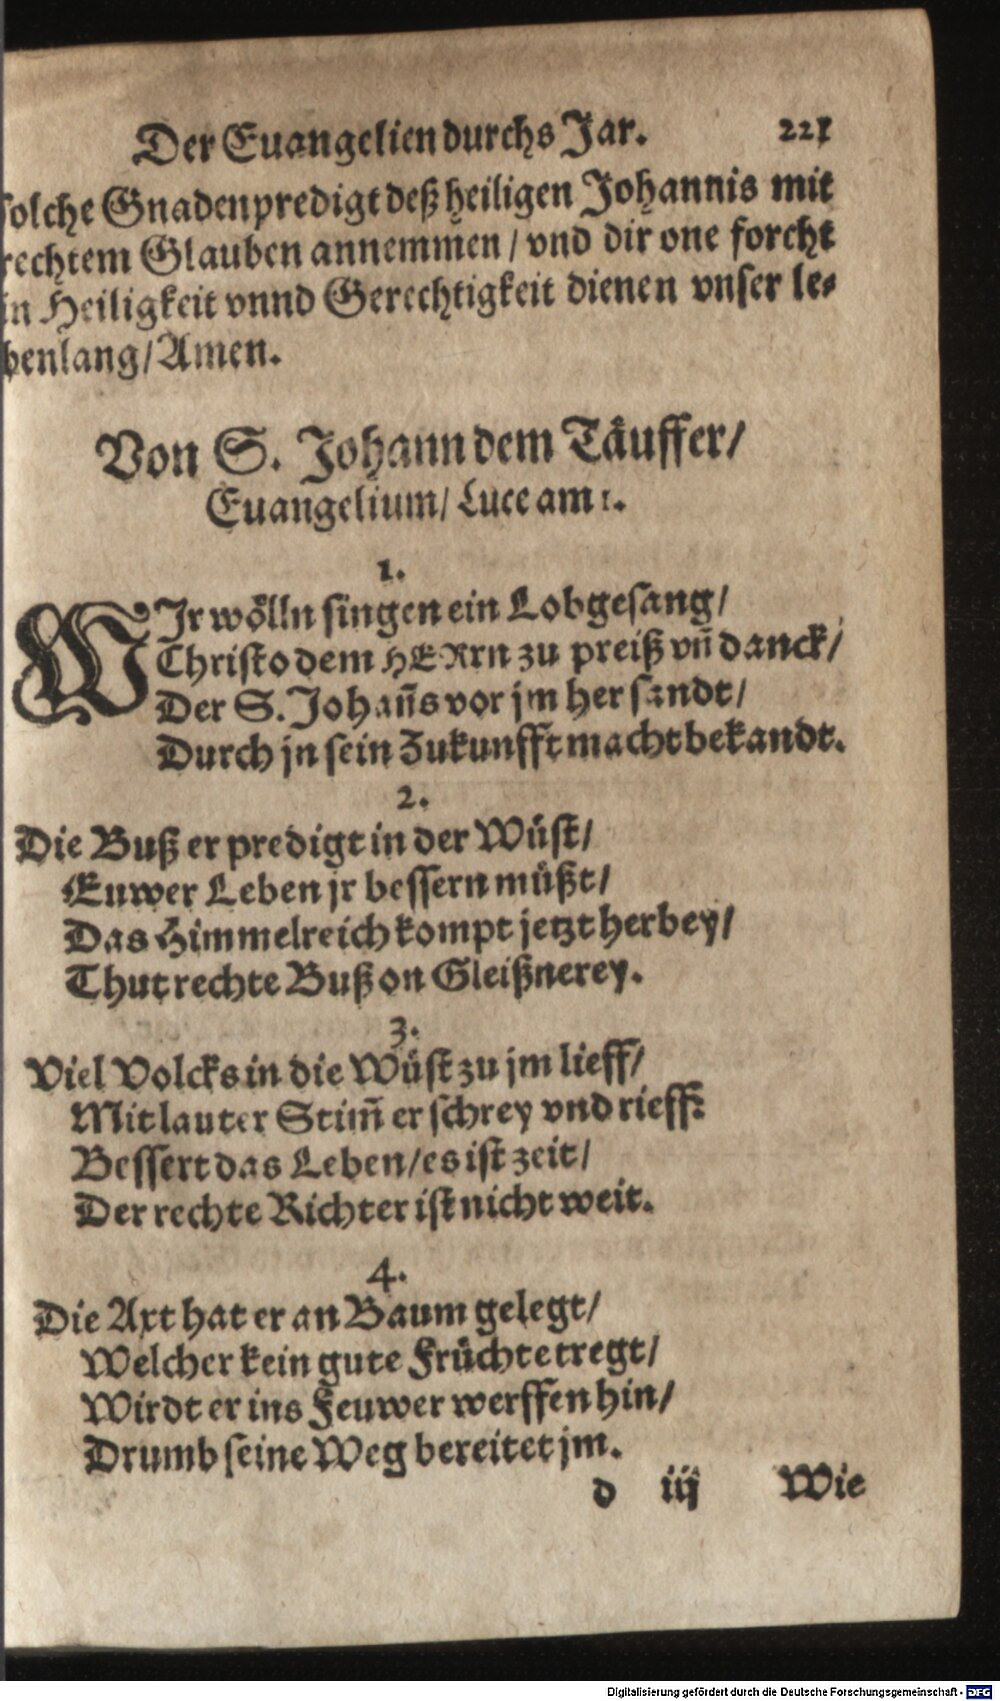 Der Euangelien durchs Jar. 221
solche Gnadenpredigt deß heiligen Johannis mit
rechtem Glauben annemmen / vnd dir one forcht
in Heiligkeit vnnd Gerechtigkeit dienen vnser le-
benlang / Amen.
Von S. Johann dem Täuffer /
Euangelium / Luce am 1.
1.
WJr wölln singen ein Lobgesang /
Christo dem HERrn zu preiß vñ danck /
Der S. Johañs vor jm her sandt /
Durch jn sein Zukunfft macht bekandt.
2.
Die Buß er predigt in der Wüst /
Euwer Leben jr bessern müßt /
Das Himmelreich kompt jetzt herbey /
Thut rechte Buß on Gleißnerey.
3.
Viel Volcks in die Wüst zu jm lieff /
Mit lauter Stim̃ er schrey vnd rieff:
Bessert das Leben / es ist zeit /
Der rechte Richter ist nicht weit.
4.
Die Axt hat er an Baum gelegt /
Welcher kein gute Früchte tregt /
Wirdt er ins Feuwer werffen hin /
Drumb seine Weg bereitet jm.
d iij Wie
Digitalisierung gefördert durch die Deutsche Forschungsgemeinschaft - DFG